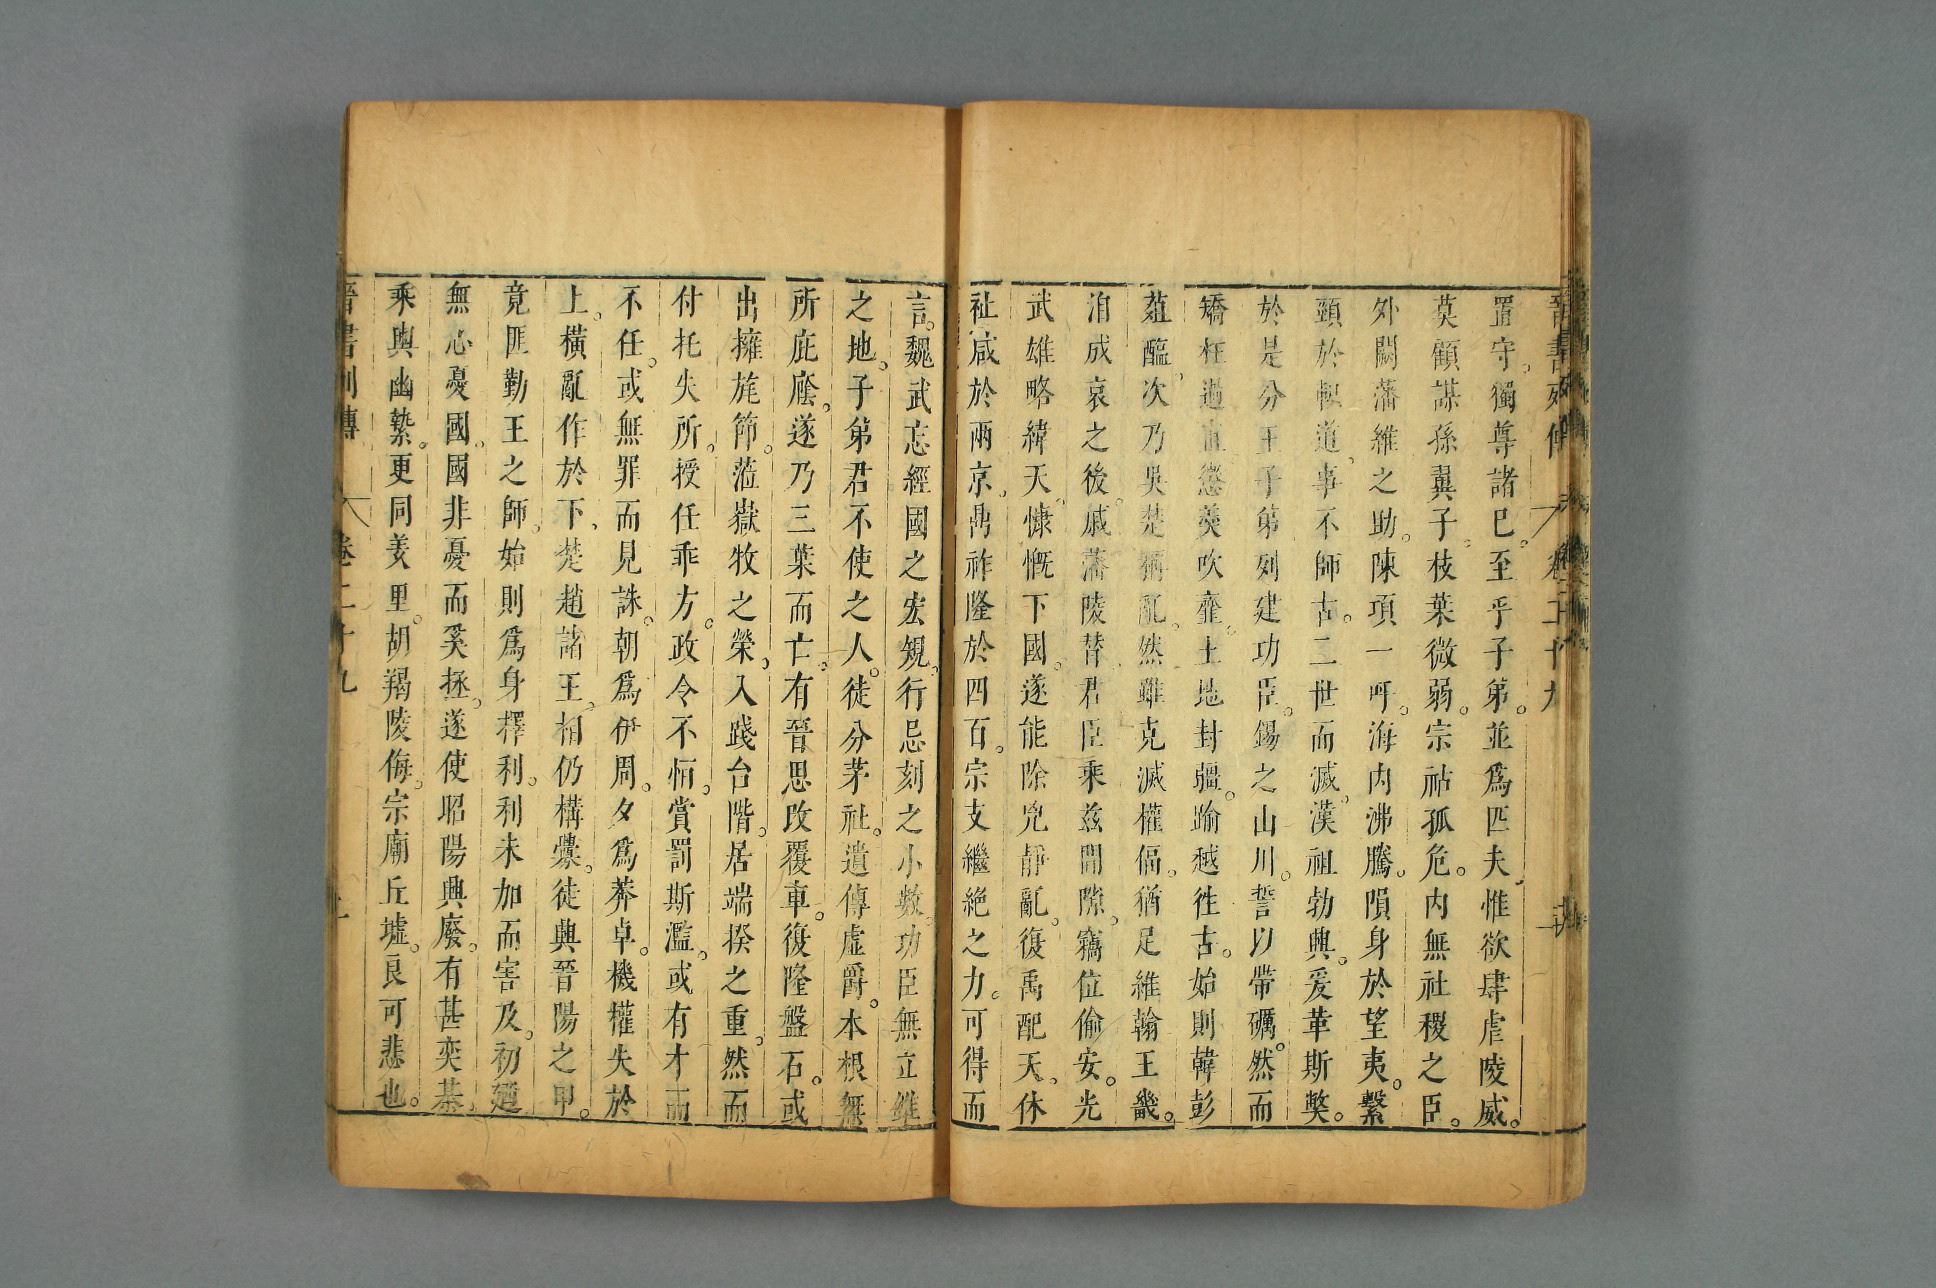 罝守。獨尊諸已。至乎子弟。並爲匹夫惟欲肆虐陵威。
莫顧謀孫翼子。枝葉微弱。宗祏孤危。内無社稷之臣。
外闕藩維之助。陳項一呼。海内沸騰。隕身於望夷。繫
頸於軹道。事不師古。二世而滅。漢祖勃興。爰革斯獘。
於是分王子弟。列建功臣。錫之山川。誓以帶礪。然而
矯枉過直。懲羹吹虀。土地封疆。踰越徃古。始則韓彭
葅醢。次乃吳楚稱亂。然雖克滅權偪。猶足維翰王畿。
洎成哀之後。戚藩陵替。君臣乘兹間隙。竊位偷安。光
武雄略緯天。慷慨下國。遂能除兇靜亂。復禹配天。休
祉咸於兩京。鼎祚隆於四百。宗支繼絶之力。可得而
言。魏武忘經國之宏規。行忌刻之小數。功臣無立錐
之地。子弟君不使之人。徒分茅社。遺傳虛爵。本根無
所庇廕。遂乃三葉而亡。有晉思改覆車。復隆盤石。或
出擁旄節。蒞嶽牧之榮。入踐台階。居端揆之重。然而
付托失所。授任乖方。政令不恒。賞罰斯濫。或有才而
不任。或無罪而見誅。朝爲伊周。夕爲莽卓。機權失於
上。橫亂作於下。楚趙諸王。相仍構釁。徒興晉陽之甲。
竟匪勤王之師。始則爲身擇利。利未加而害及。初廼
無心憂國。國非憂而奚拯。遂使昭陽興廢。有甚奕棊。
乘輿幽縶。更同羑里。胡羯陵侮。宗廟丘墟。良可悲也。
晉書列傳 卷二十九